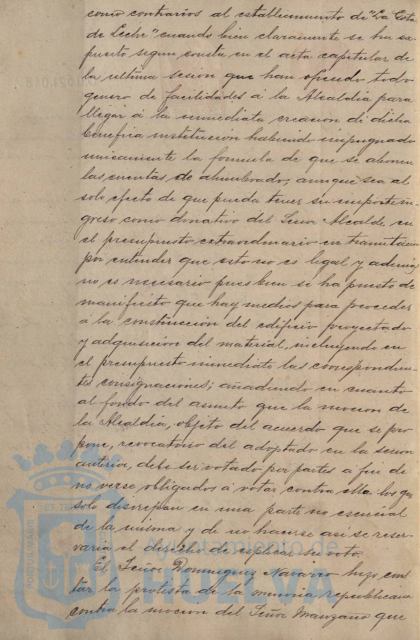 como contrarios al establecimiento de "La Gota
de Leche" cuando bien claramente se ha ex-
puesto segun consta en el acta capitular de
la ultima sesion que han ofrecido todo
genero de facilidades á la Alcaldia para
llegar á la inmediata creacion de dicha
benefica institucion habiendo impugnado
unicamente la formula de que se abonen
las cuentas de alumbrado, aunque sea al
solo efecto de que pueda tener su importe in-
greso como donativo del Señor Alcalde, en
el presupuesto extraordinario en tramitacion
por entender que esto no es legal y ademas
no es necesario pues bien se ha puesto de
manifiesto que hay medios para proceder
á la construccion del edificio proyectado
y adquisicion del material, incluyendo en
el presupuesto inmediato las correspondien-
tes consignaciones; añadiendo en cuanto
al fondo del asunto que la mocion de
la Alcaldia, objeto del acuerdo que se pro-
pone, revocatorio del adoptado en la sesion
anterior, debe ser votado por partes á fin de
no verse obligados á votar contra ella los que
solo discrepan en una parte no esencial
de la misma y de no hacerse asi se reser-
varia el derecho de explicar su voto.
El Señor Dominguez Navarro hizo cons-
tar la protesta de la minoria republicana
contra la mocion del Señor Manzano que
Ayuntamiento de
HUELVA